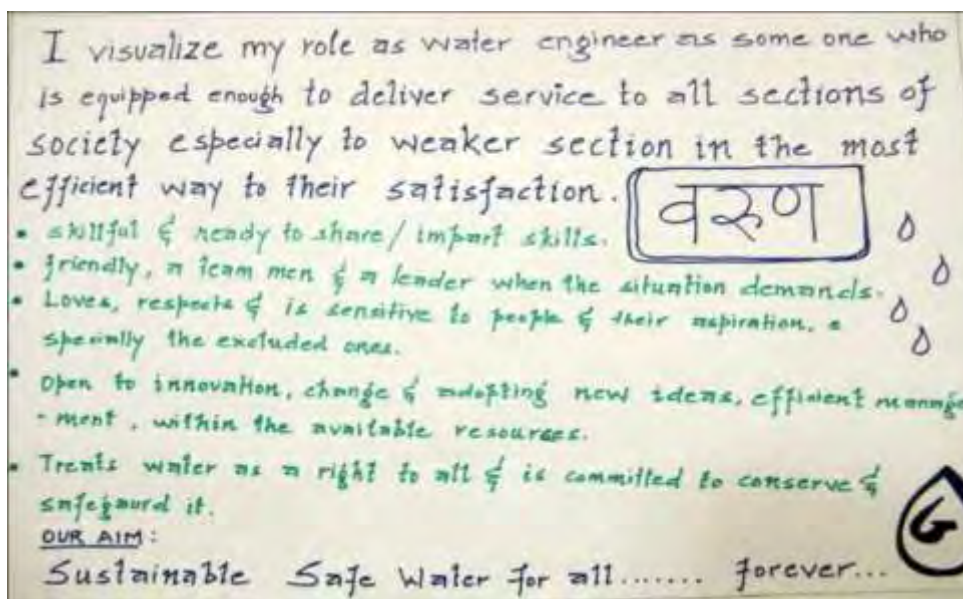 I visualize my role as water engineer as some one who
is equipped enough to deliver service to all sections of
society especially to weaker section in the most
efficient way to their satisfaction.
वरुण
• skillful & ready to share / impart skills.
• friendly, a team men & a leader when the situation demands.
• Loves, respects & is sensitive to people & their aspiration, e
specially the excluded ones.
• Open to innovation, change & adopting new ideas, efficient manage
-ment, within the available resources.
• Treats water as a right to all & is committed to conserve &
safegaurd it.
OUR AIM:
Sustainable Safe Water for all....... forever...
G